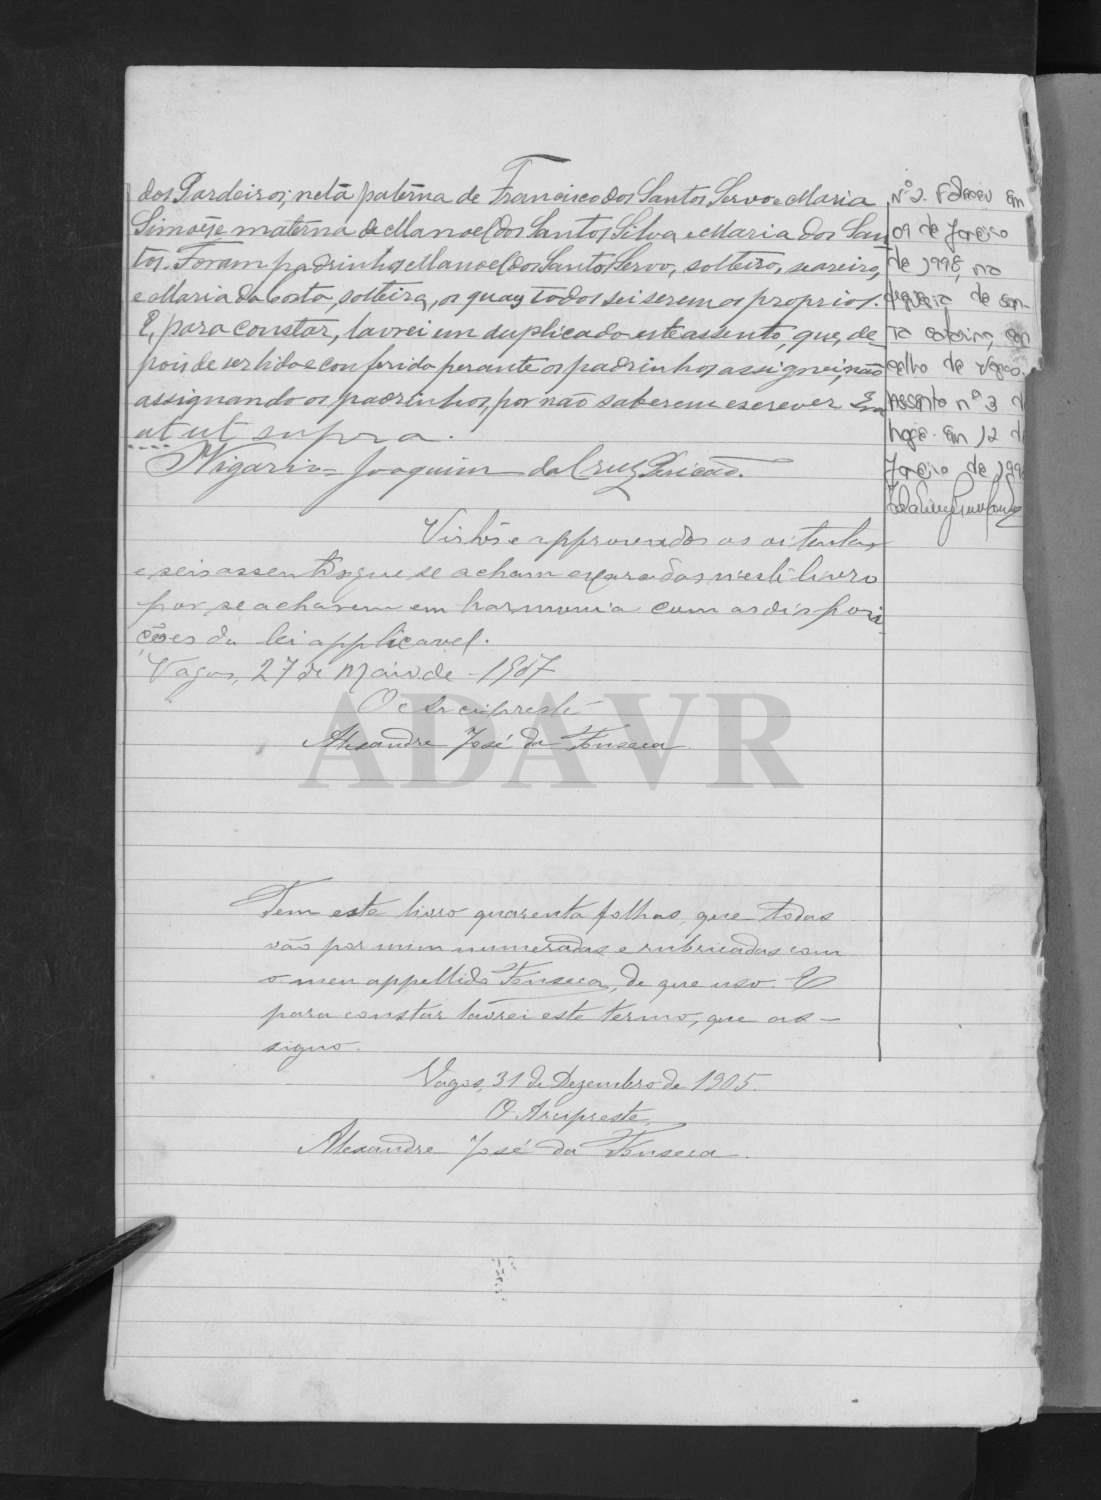 dos Pardeiros; neta paterna de Francisco dos Santos Servo e Maria
Simões, e materna de Manoel dos Santos Silva e Maria dos San
tos. Foram padrinhos Manoel dos Santos Servo, solteiro, seareiro,
e Maria da Costa, solteira, os quaes todos sei serem os proprios.
E, para constar, lavrei em duplicado este assento, que, de
pois de ser lido e conferido perante os padrinhos assignei, não
assignando os padrinhos, por não saberem escrever. Era
ut ut supra.
O Vigario = Joaquim da Cruz Pericão.
Vistos e approvados os oitenta
e seis assentos que se acham exarados n'este livro
por se acharem em harmonia com as dispozi
ções da lei applicavel.
Vagos, 27 de Maio de 1907
O Arcipreste
Alexandre José da Fonseca
Tem este livro quarenta folhas, que todas
vão por mim numeradas e rubricadas com
o meu appellido Fonseca, de que uso. E
para constar lavrei este termo, que as-
signo.
Vagos, 31 de Dezembro de 1905.
O Arcipreste,
Alexandre José da Fonseca.
Nº 2. Faleceu em
09 de Janeiro
de 1998, na
freguesia de San-
ta Catarina, con
celho de Vagos.
Assento nº 3 de
hoje. Em 12 de
Janeiro de 1998
ADAVR